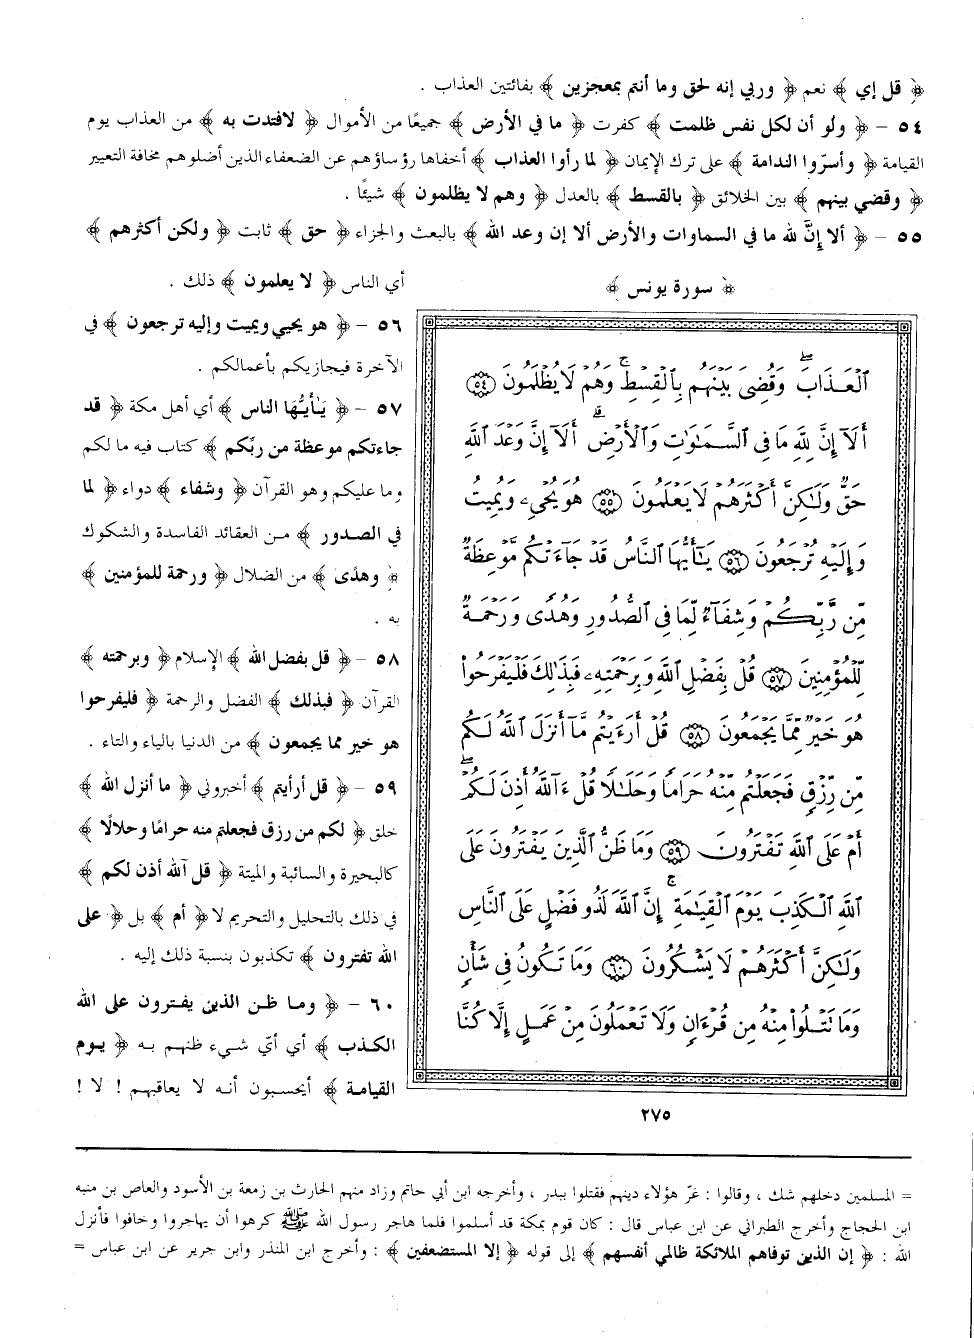 ﴿ قل إي ﴾ نعم ﴿ وربي إنه لحق وما أنتم بمعجزين ﴾ بفائتين العذاب .
٥٤ – ﴿ ولو أن لكل نفس ظلمت ﴾ كفرت ﴿ ما في الأرض ﴾ جميعًا من الأموال ﴿ لافتدت به ﴾ من العذاب يوم
القيامة ﴿ وأسرّوا الندامة ﴾ على ترك الإيمان ﴿ لما رأوا العذاب ﴾ أخفاها رؤساؤهم عن الضعفاء الذين أضلوهم مخافة التعيير
﴿ وقضي بينهم ﴾ بين الخلائق ﴿ بالقسط ﴾ بالعدل ﴿ وهم لا يظلمون ﴾ شيئًا .
٥٥ – ﴿ ألا إنَّ لله ما في السماوات والأرض ألا إن وعد الله ﴾ بالبعث والجزاء ﴿ حق ﴾ ثابت ﴿ ولكن أكثرهم ﴾
أي الناس ﴿ لا يعلمون ﴾ ذلك .
٥٦ – ﴿ هو يحيي ويميت وإليه ترجعون ﴾ في
الآخرة فيجازيكم بأعمالكم .
٥٧ – ﴿ يَٰأيُّهَا الناس ﴾ أي أهل مكة ﴿ قد
جاءتكم موعظة من ربِّكم ﴾ كتاب فيه ما لكم
وما عليكم وهو القرآن ﴿ وشفاء ﴾ دواء ﴿ لما
في الصدور ﴾ من العقائد الفاسدة والشكوك
﴿ وهدًى ﴾ من الضلال ﴿ ورحمة للمؤمنين ﴾
به .
٥٨ – ﴿ قل بفضل الله ﴾ الإسلام ﴿ وبرحمته ﴾
القرآن ﴿ فبذلك ﴾ الفضل والرحمة ﴿ فليفرحوا
هو خير مما يجمعون ﴾ من الدنيا بالياء والتاء .
٥٩ – ﴿ قل أرأيتم ﴾ أخبروني ﴿ ما أنزل الله ﴾
خلق ﴿ لكم من رزق فجعلتم منه حرامًا وحلالًا ﴾
كالبحيرة والسائبة والميتة ﴿ قل آلله أذن لكم ﴾
في ذلك بالتحليل والتحريم لا ﴿ أم ﴾ بل ﴿ على
الله تفترون ﴾ تكذبون بنسبة ذلك إليه .
٦٠ – ﴿ وما ظن الذين يفترون على الله
الكذب ﴾ أي أيّ شيء ظنهم به ﴿ يوم
القيامة ﴾ أيحسبون أنه لا يعاقبهم ! لا !
﴿ سورة يونس ﴾
ٱلْعَذَابَۖ وَقُضِىَ بَيْنَهُم بِٱلْقِسْطِۚ وَهُمْ لَا يُظْلَمُونَ ٥٤
أَلَآ إِنَّ لِلَّهِ مَا فِى ٱلسَّمَٰوَٰتِ وَٱلْأَرْضِۗ أَلَآ إِنَّ وَعْدَ ٱللَّهِ
حَقٌّ وَلَٰكِنَّ أَكْثَرَهُمْ لَا يَعْلَمُونَ ٥٥ هُوَ يُحْىِۦ وَيُمِيتُ
وَإِلَيْهِ تُرْجَعُونَ ٥٦ يَٰٓأَيُّهَا ٱلنَّاسُ قَدْ جَآءَتْكُم مَّوْعِظَةٌ
مِّن رَّبِّكُمْ وَشِفَآءٌ لِّمَا فِى ٱلصُّدُورِ وَهُدًى وَرَحْمَةٌ
لِّلْمُؤْمِنِينَ ٥٧ قُلْ بِفَضْلِ ٱللَّهِ وَبِرَحْمَتِهِۦ فَبِذَٰلِكَ فَلْيَفْرَحُوا۟
هُوَ خَيْرٌ مِّمَّا يَجْمَعُونَ ٥٨ قُلْ أَرَءَيْتُم مَّآ أَنزَلَ ٱللَّهُ لَكُم
مِّن رِّزْقٍ فَجَعَلْتُم مِّنْهُ حَرَامًا وَحَلَٰلًا قُلْ ءَآللَّهُ أَذِنَ لَكُمْۖ
أَمْ عَلَى ٱللَّهِ تَفْتَرُونَ ٥٩ وَمَا ظَنُّ ٱلَّذِينَ يَفْتَرُونَ عَلَى
ٱللَّهِ ٱلْكَذِبَ يَوْمَ ٱلْقِيَٰمَةِۚ إِنَّ ٱللَّهَ لَذُو فَضْلٍ عَلَى ٱلنَّاسِ
وَلَٰكِنَّ أَكْثَرَهُمْ لَا يَشْكُرُونَ ٦٠ وَمَا تَكُونُ فِى شَأْنٍ
وَمَا تَتْلُوا۟ مِنْهُ مِن قُرْءَانٍ وَلَا تَعْمَلُونَ مِنْ عَمَلٍ إِلَّا كُنَّا
٢٧٥
= المسلمين دخلهم شك ، وقالوا : غرّ هؤلاء دينهم فقتلوا ببدر ، وأخرجه ابن أبي حاتم وزاد منهم الحارث بن زمعة بن الأسود والعاص بن منبه
ابن الحجاج وأخرج الطبراني عن ابن عباس قال : كان قوم بمكة قد أسلموا فلما هاجر رسول الله ﷺ كرهوا أن يهاجروا وخافوا فأنزل
الله : ﴿ إن الذين توفاهم الملائكة ظالمي أنفسهم ﴾ إلى قوله ﴿ إلا المستضعفين ﴾ : وأخرج ابن المنذر وابن جرير عن ابن عباس =